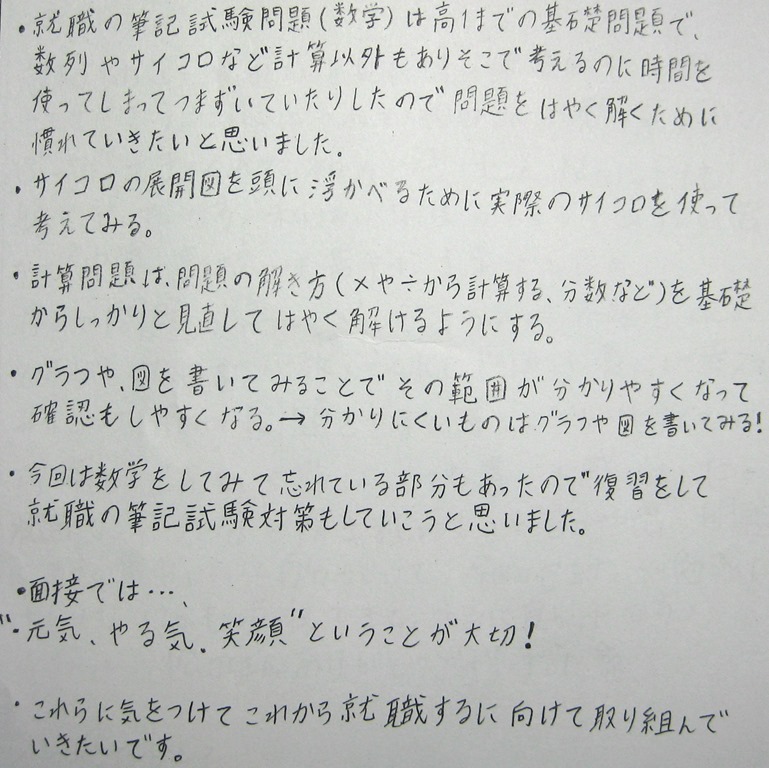 ・就職の筆記試験問題(数学)は高1までの基礎問題で、
数列やサイコロなど計算以外もありそこで考えるのに時間を
使ってしまってつまずいていたりしたので問題をはやく解くために
慣れていきたいと思いました。
・サイコロの展開図を頭に浮かべるために実際のサイコロを使って
考えてみる。
・計算問題は、問題の解き方(×や÷から計算する、分数など)を基礎
からしっかりと見直してはやく解けるようにする。
・グラフや、図を書いてみることでその範囲が分かりやすくなって
確認もしやすくなる。→分かりにくいものはグラフや図を書いてみる!
・今回は数学をしてみて忘れている部分もあったので復習をして
就職の筆記試験対策もしていこうと思いました。
・面接では…、
"・元気、やる気、笑顔"ということが大切!
・これらに気をつけてこれから就職するに向けて取り組んで
いきたいです。